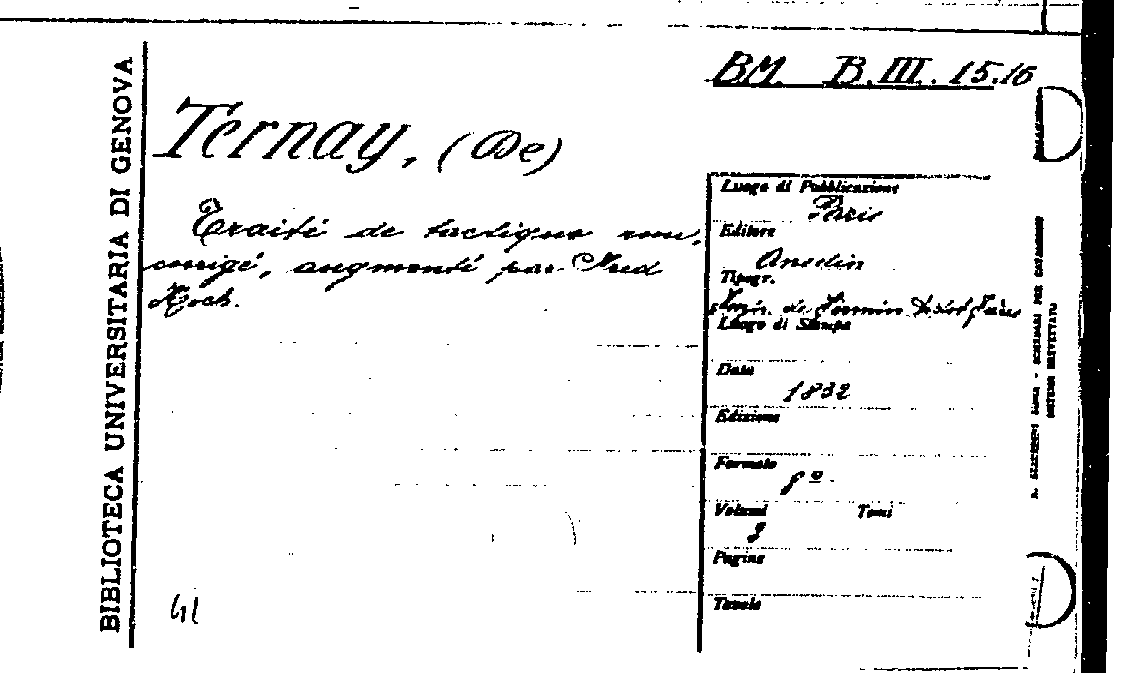 BIBLIOTECA UNIVERSITARIA DI GENOVA
BM. B.III.15.16
Ternay, (De)
Traité de tactique rev.
corrigé, augmenté par Fred
Koch.
Luogo di Pubblicazione
Paris
Editore
Anselin
Tipogr.
Impr. de Firmin Didot Frères
Luogo di Stampa
Data
1832
Edizione
Formato
8º.
Volumi Tomi
2
Pagine
Tavole
41